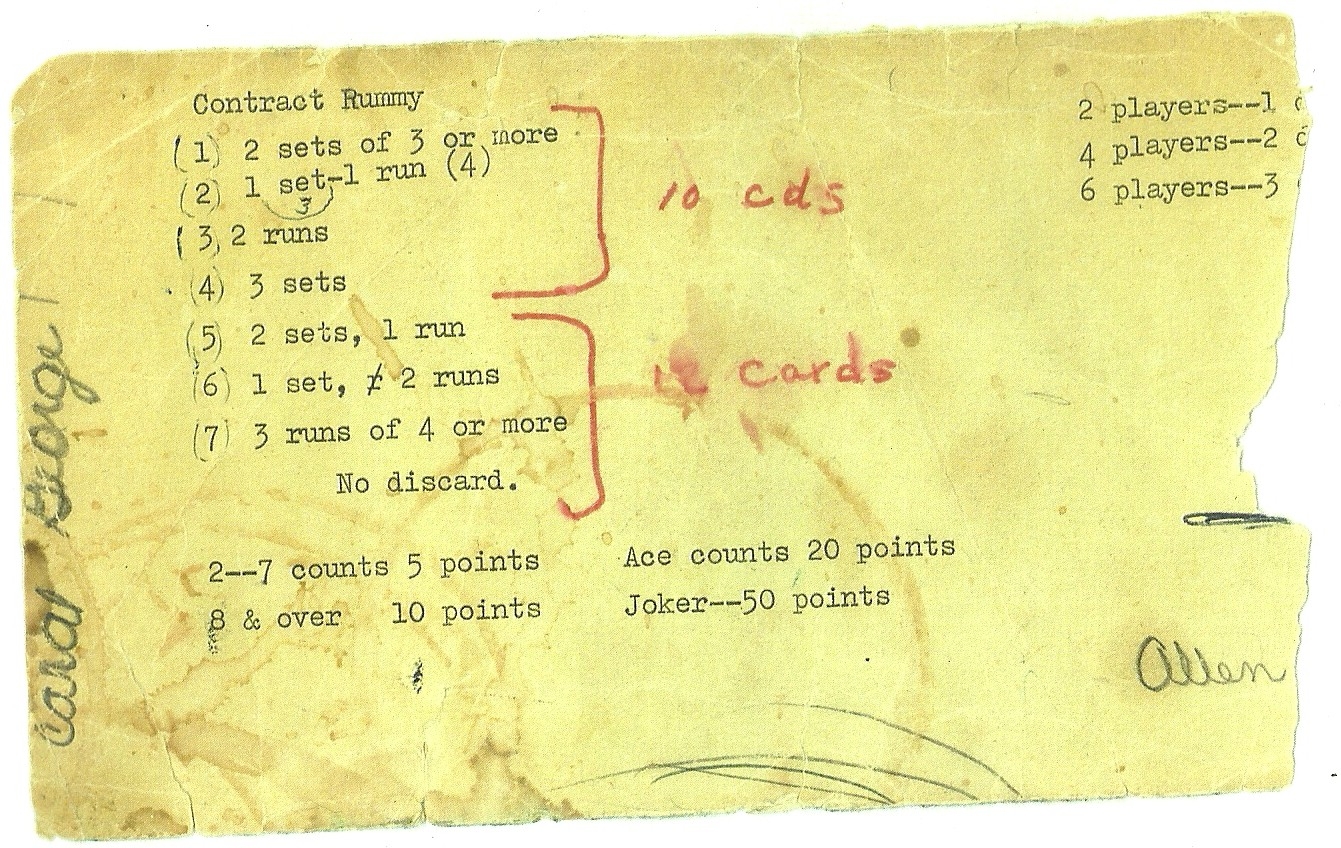 Contract Rummy
(1) 2 sets of 3 or more
(2) 1 set-1 run (4)
3
(3) 2 runs
(4) 3 sets
(5) 2 sets, 1 run
(6) 1 set, 2 runs
(7) 3 runs of 4 or more
No discard.
10 cds
12 cards
2 players--1
4 players--2
6 players--3
2--7 counts 5 points
8 & over 10 points
Ace counts 20 points
Joker--50 points
Allen
Carol George